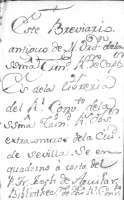 Este Breviario
antiguo de N. Ord. de la
ssma Trin.
Es de la Librería
del Rl. Convto. de la
ssma Trin. Rl. Clos.
extramuros de la Ciu.
de Sevilla. Se en
quaderno a costa del
P. Fr. Josph de Aguilar
Bibliothec.